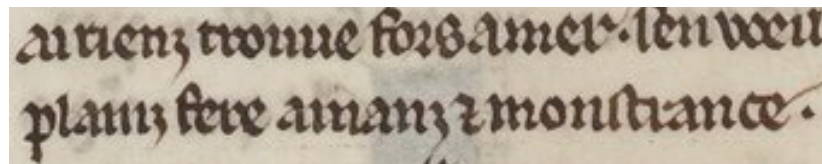 ai rienz trouue fors amer. sen voeil
plainz fere amanz ⁊ monſtrance.